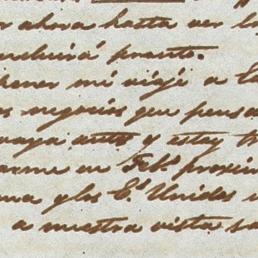 ahora hasta ver lo
concluirá pronto.
poner mi viaje a E
os negocios que pensa
vaya esto y estoy tr
arme en Feb.º proxim
na y los E.s Unidos
a nuestra vista sa